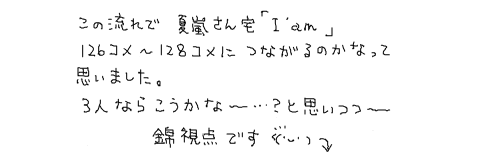 この流れで 夏嵐さん宅「I'am」
126コメ～128コメに つながるのかなって
思いました。
3人ならこうかな～…?と思いつつ～
錦視点です